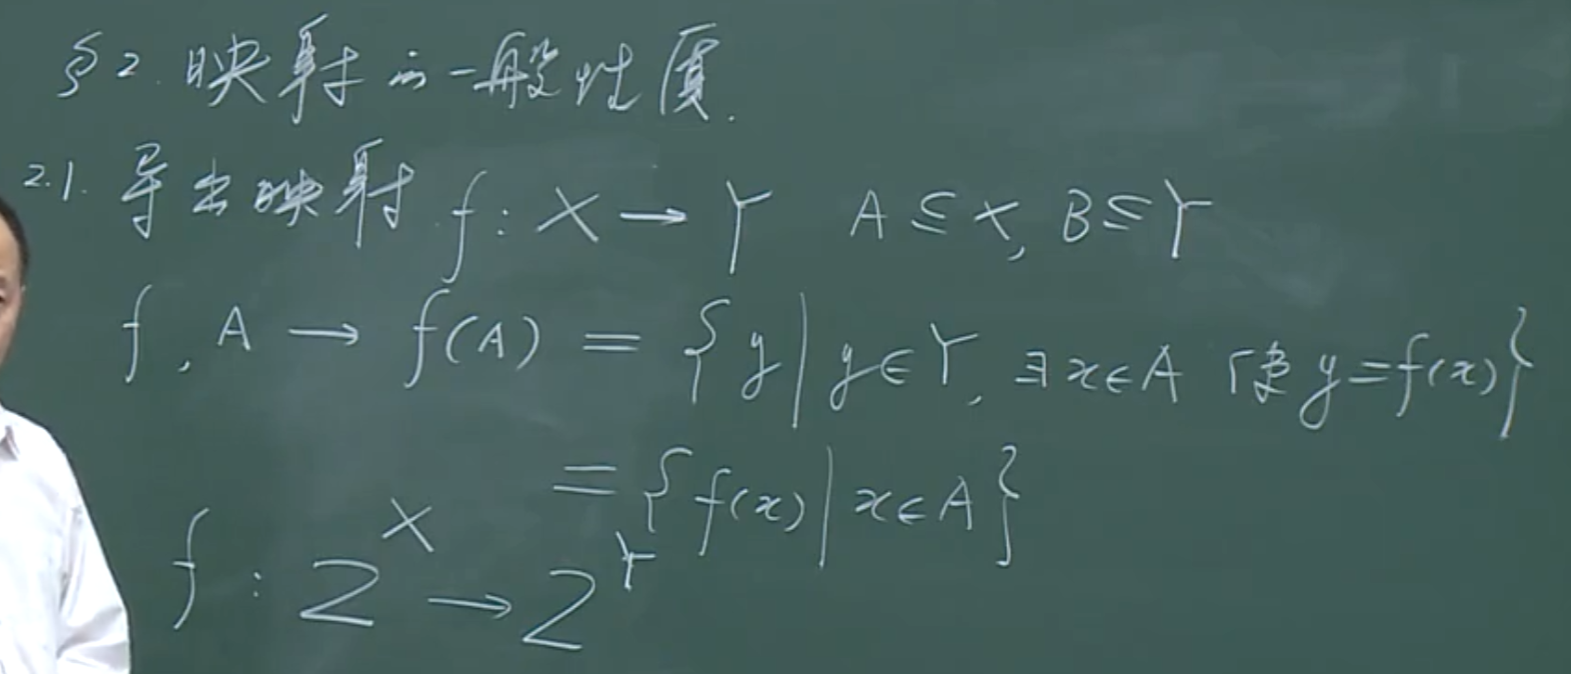 §2. 映射的一般性質.
2.1. 导出映射 f: X → Y A ⊆ X, B ⊆ Y
f, A → f(A) = {y | y∈Y, ∃x∈A 使 y=f(x)}
= {f(x) | x∈A}
f: 2^X → 2^Y